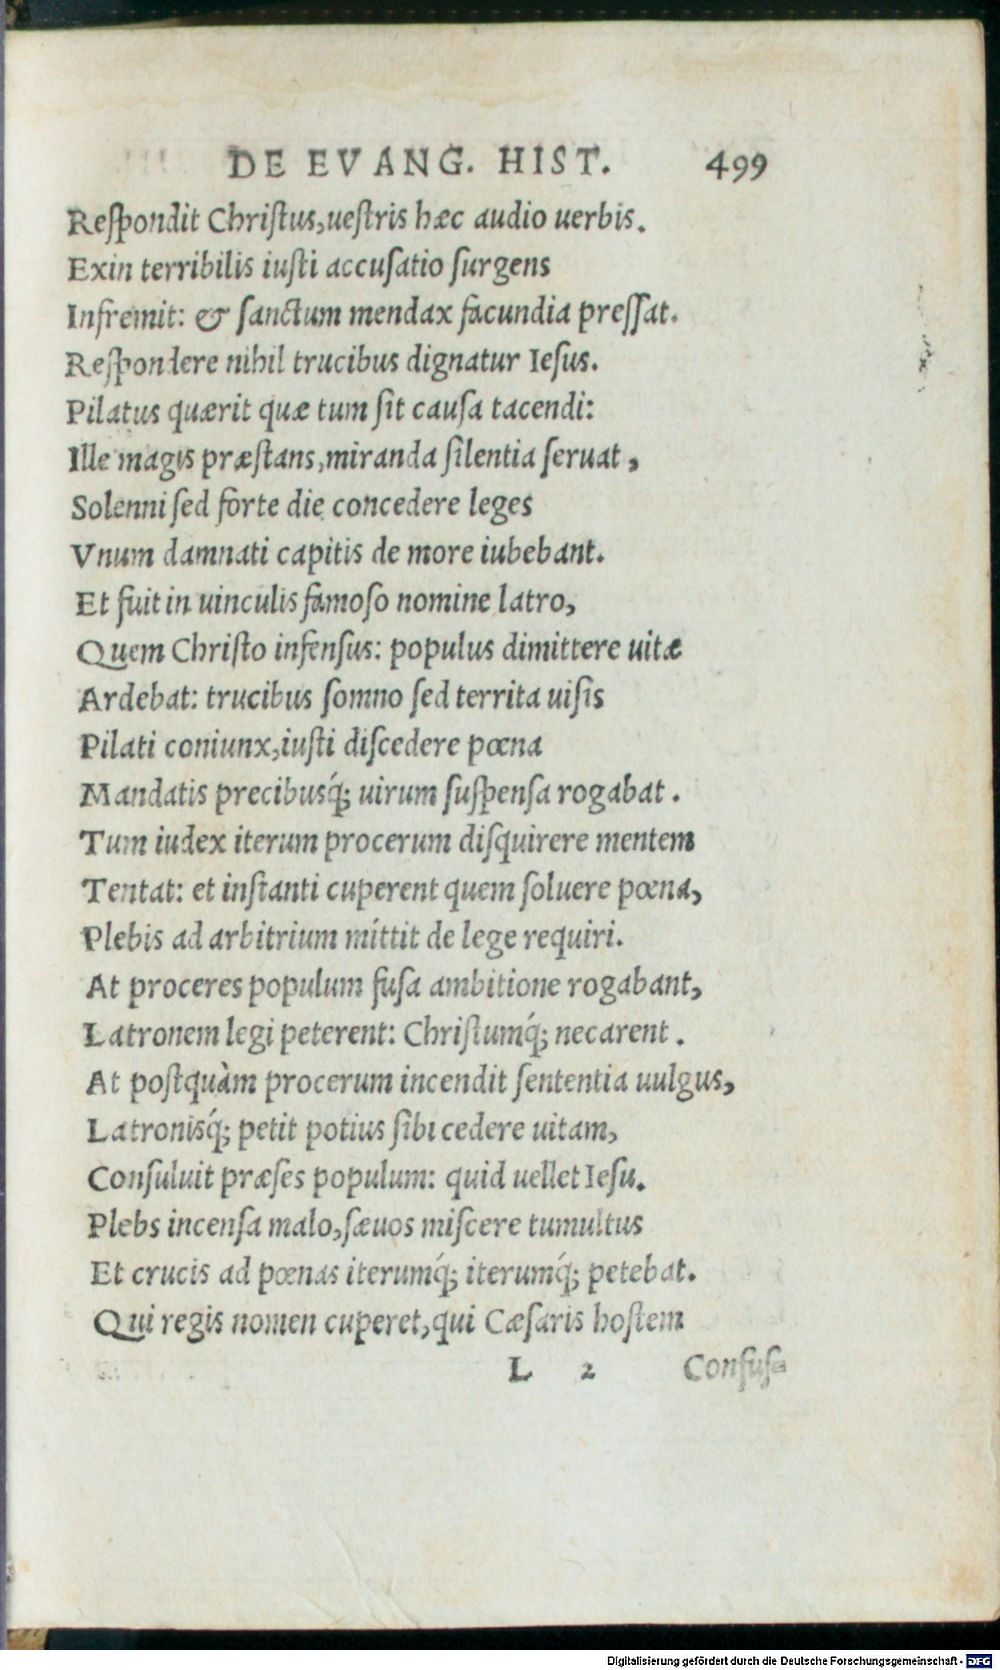 DE EVANG. HIST. 499
Reſpondit Chriſtus,ueſtris hæc audio uerbis.
Exin terribilis iuſti accuſatio ſurgens
Infremit: & ſanctum mendax facundia preſſat.
Reſpondere nihil trucibus dignatur Ieſus.
Pilatus quærit quæ tum ſit cauſa tacendi:
Ille magis præſtans,miranda ſilentia ſeruat,
Solenni ſed forte die concedere leges
Vnum damnati capitis de more iubebant.
Et fuit in uinculis famoſo nomine latro,
Quem Chriſto infenſus: populus dimittere uitæ
Ardebat: trucibus ſomno ſed territa uiſis
Pilati coniunx,iuſti diſcedere pœna
Mandatis precibusq́; uirum ſuſpenſa rogabat.
Tum iudex iterum procerum diſquirere mentem
Tentat: et inſtanti cuperent quem ſoluere pœna,
Plebis ad arbitrium míttit de lege requiri.
At proceres populum fuſa ambitione rogabant,
Latronem legi peterent: Chriſtumq́; necarent.
At poſtquàm procerum incendit ſententia uulgus,
Latronisq́; petit potius ſibi cedere uitam,
Conſuluit præſes populum: quid uellet Ieſu.
Plebs incenſa malo,ſæuos miſcere tumultus
Et crucis ad pœnas iterumq́; iterumq́; petebat.
Qui regis nomen cuperet,qui Cæſaris hoſtem
L 2 Confuſa
Digitalisierung gefördert durch die Deutsche Forschungsgemeinschaft - DFG